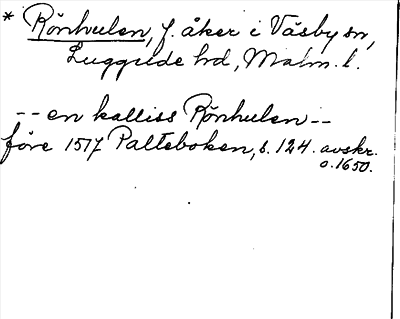 * Rönhulen, f. åker i Väsby sn,
Luggude hd, Malm. l.
-- en kalliss Rönhulen --
före 1517 Palteboken, s. 124. avskr.
o. 1650.